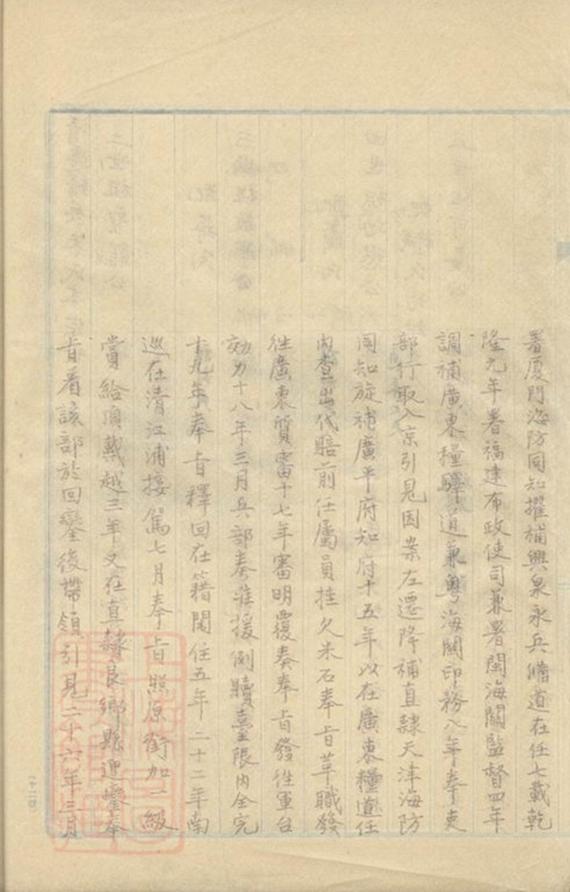 署廈門海防同知擢補興泉永兵備道在任七載乾
隆元年署福建布政使司兼署閩海關監督四年
調補廣東糧驛道兼粵海關印務八年奉吏
部行取入京引見因案左遷降補直隸天津海防
同知旋補廣平府知府十五年以在廣東糧道任
內查出代賠前任屬員挂欠米石奉旨革職發
往廣東質審十七年審明覆奏奉旨發往軍台
効力十八年三月兵部奏准援例贖臺限內全完
十九年奉旨釋回在籍閑住五年二十二年南
巡在清江浦接駕七月奉旨照原銜加一級
賞給頂戴越三年又在直隸良鄉縣迎鑾奉
旨着該部於回鑾後帶領引見二十六年三月